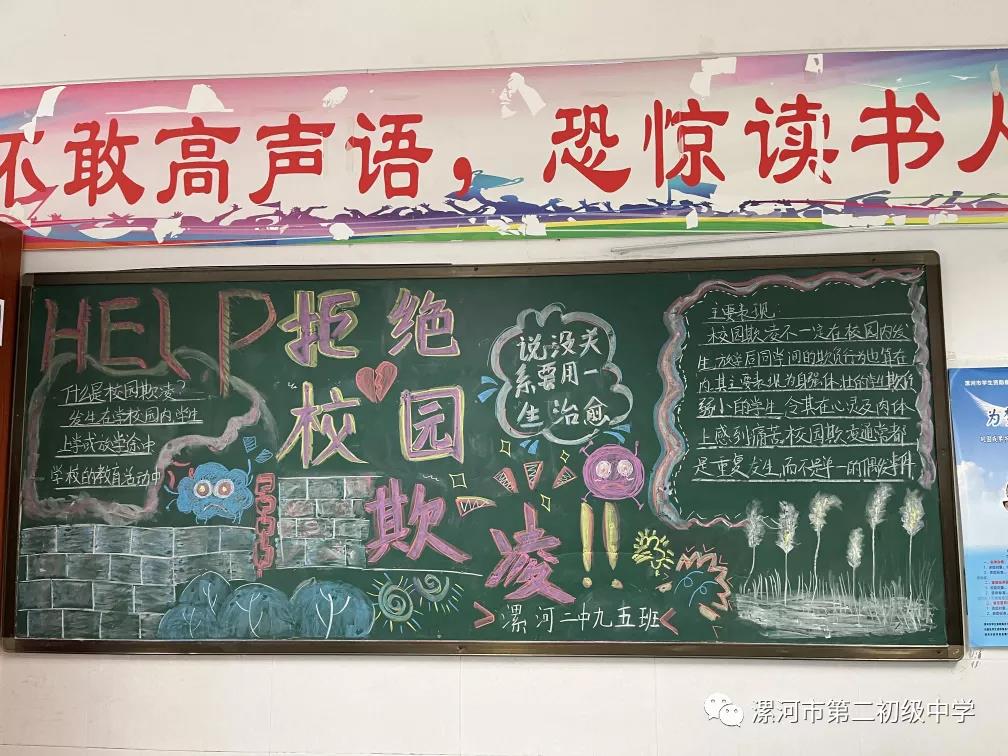 不敢高声语，恐惊读书人
HELP
拒绝
校园
欺凌!!
什么是校园欺凌?
发生在学校园内学生
上学或放学途中
学校的教育活动中
说没关
系要用一
生治愈
主要表现
校园欺凌不一定在校园内发
生,放学后同学间的欺负行为也算在
内其主要表现为身强体壮的学生欺负
弱小的学生,令其在心灵及肉体
上感到痛苦,校园欺凌通常都
是重复发生,而不是单一的偶发事件
漯河二中九五班
漯河市学生资助
漯河市第二初级中学